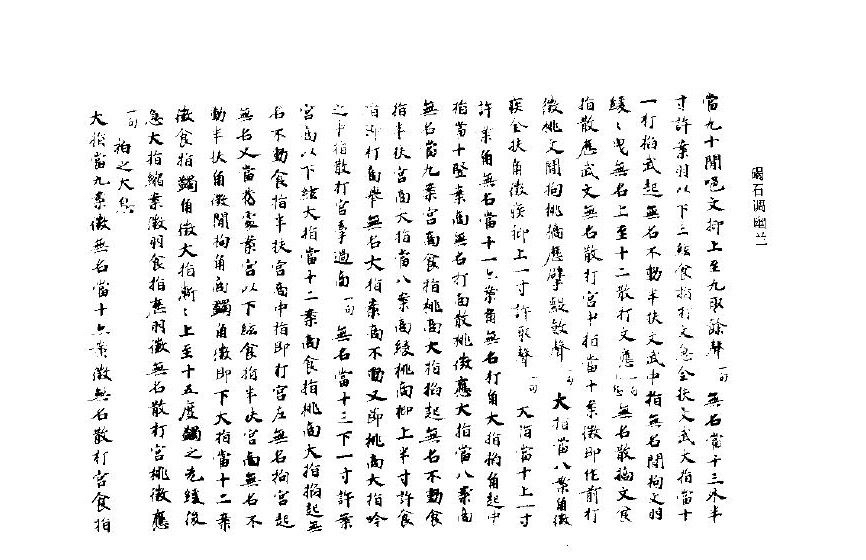 碣石调幽兰
當九十間咽文抑上至九取餘聲一句 無名當十三外半
寸許案羽以下三絃食指打文急全扶文武大指當十
一打搯武起無名不動半扶文武中指無名間拘文羽
緩〻曳無名上至十二散打文應一句 無名散摘文食
指散應武文無名散打宮中指當十案徵即作前打
徵挑文間拘挑摘應擘聲一句 大指當八案角徵
疾全扶角徵疾抑上一寸許取聲一句 大指當十上一寸
許案角無名當十一案角無名打角大指搯角起中
指當十豎案商無名打商散挑徵應大指當八案商
無名當九案宮商食指挑商大指搯起無名不動食
指半扶宮商大指當八案商緩挑商抑上半寸許食
指即打商舉無名大指案商不動又節挑商大指吟
之中指散打宮過商一句 無名當十三下一寸許案
宮商以下絃大指當十二案商食指挑商大指搯起無
名不動食指半扶宮商中指即打宮左無名拘宮起
無名又當舊處案宮以下絃食指半扶宮商無名不
動半扶角徵間拘角商蠲角徵即下大指當十二案
徵食指蠲角徵大指漸〻上至十五度蠲之先緩後
急大指縮案徵羽食指應羽徵無名散打宮挑徵應
一句 拍之大息
大指當九案徵無名當十案徵無名散打宮食指